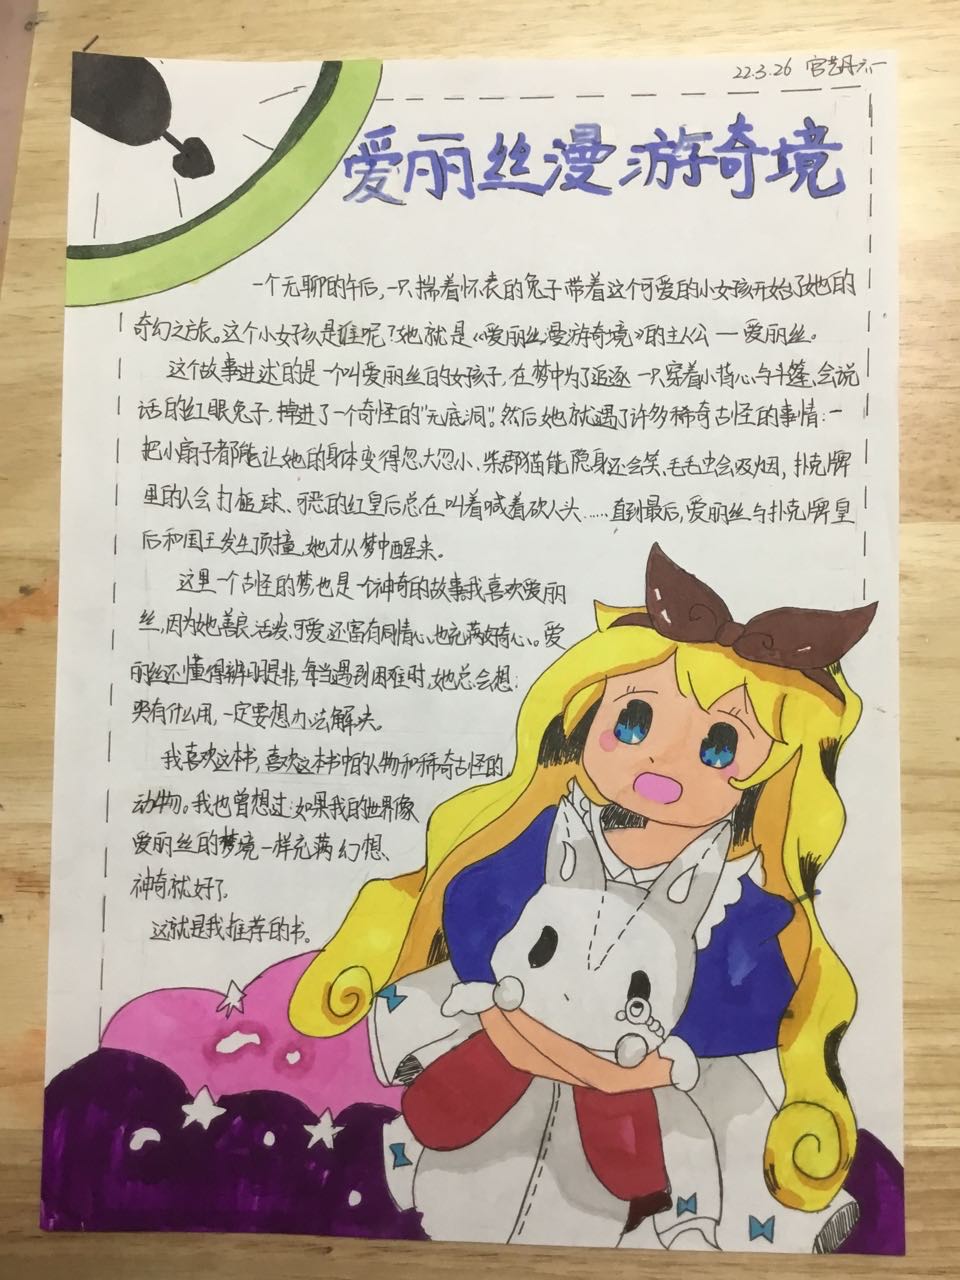 22.3.26 宫艺丹 六一
爱丽丝漫游奇境
一个无聊的午后，一只揣着怀表的兔子带着这个可爱的小女孩开始了她的
奇幻之旅。这个小女孩是谁呢？她就是《爱丽丝漫游奇境》的主人公——爱丽丝。
这个故事讲述的是一个叫爱丽丝的女孩子，在梦中为了追逐一只穿着小背心与斗篷，会说
话的红眼兔子，掉进了一个奇怪的“无底洞”。然后她就遇了许多稀奇古怪的事情：一
把小扇子都能让她的身体变得忽大忽小、柴郡猫能隐身还会笑、毛毛虫会吸烟，扑克牌
里的人会打槌球、邪恶的红皇后总在叫着喊着砍人头……直到最后，爱丽丝与扑克牌皇
后和国王发生顶撞，她才从梦中醒来。
这里一个古怪的梦也是一个神奇的故事，我喜欢爱丽
丝，因为她善良、活泼、可爱，还富有同情心，也充满好奇心。爱
丽丝还懂得辨明是非，每当遇到困难时，她总会想：
哭有什么用，一定要想办法解决。
我喜欢这本书，喜欢这本书中的人物和稀奇古怪的
动物。我也曾想过：如果我的世界像
爱丽丝的梦境一样充满幻想、
神奇就好了。
这就是我推荐的书。